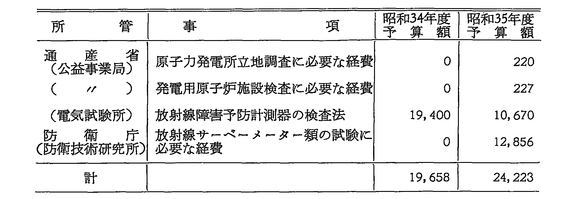 所管 事項 昭和34年度予算額 昭和35年度予算額
通産省
(公益事業局) 原子力発電所立地調査に必要な経費 0 220
( 〃 ) 発電用原子炉施設検査に必要な経費 0 227
(電気試験所) 放射線障害予防計測器の検査法 19,400 10,670
防衛庁 放射線サーベーメーター類の試験に
(防衛技術研究所) 必要な経費 0 12,856
計 19,658 24,223